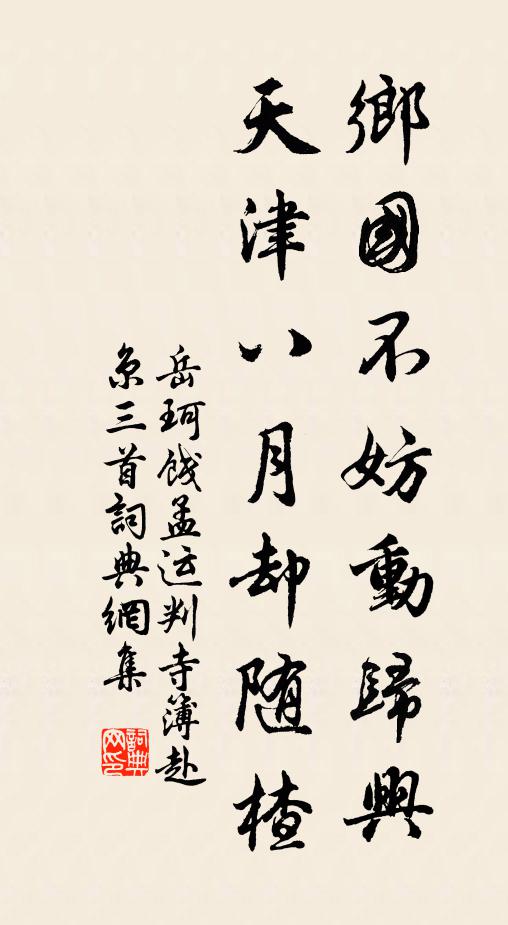 鄉國不妨動歸興
天津八月却随楂
岳珂餞孟运判寺簿赴
京三首詞典網集
詞典网印